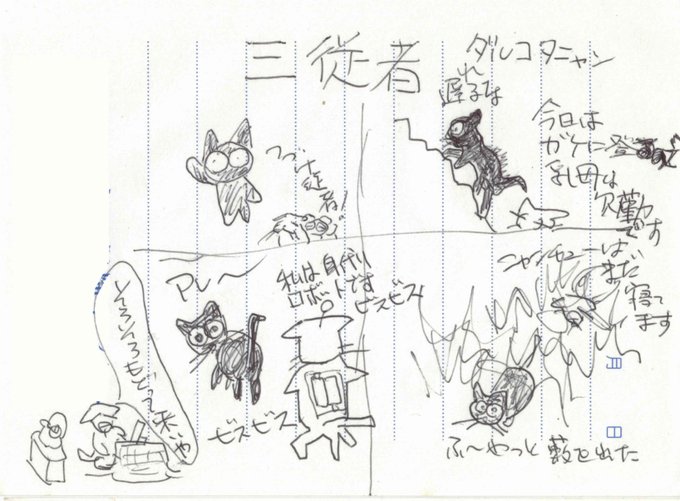 三従者
ダルコタニャン
つづけ従者!
遅れるな
今日は
ガケに登
乳母は
欠勤
です
アレ〜
私は身代り
ロボートです
ビスビス
ビスビス
そろそろもどって来いや
ニャンセーはまだ
寝て
ます
ふ〜やっと藪を出た
月
日